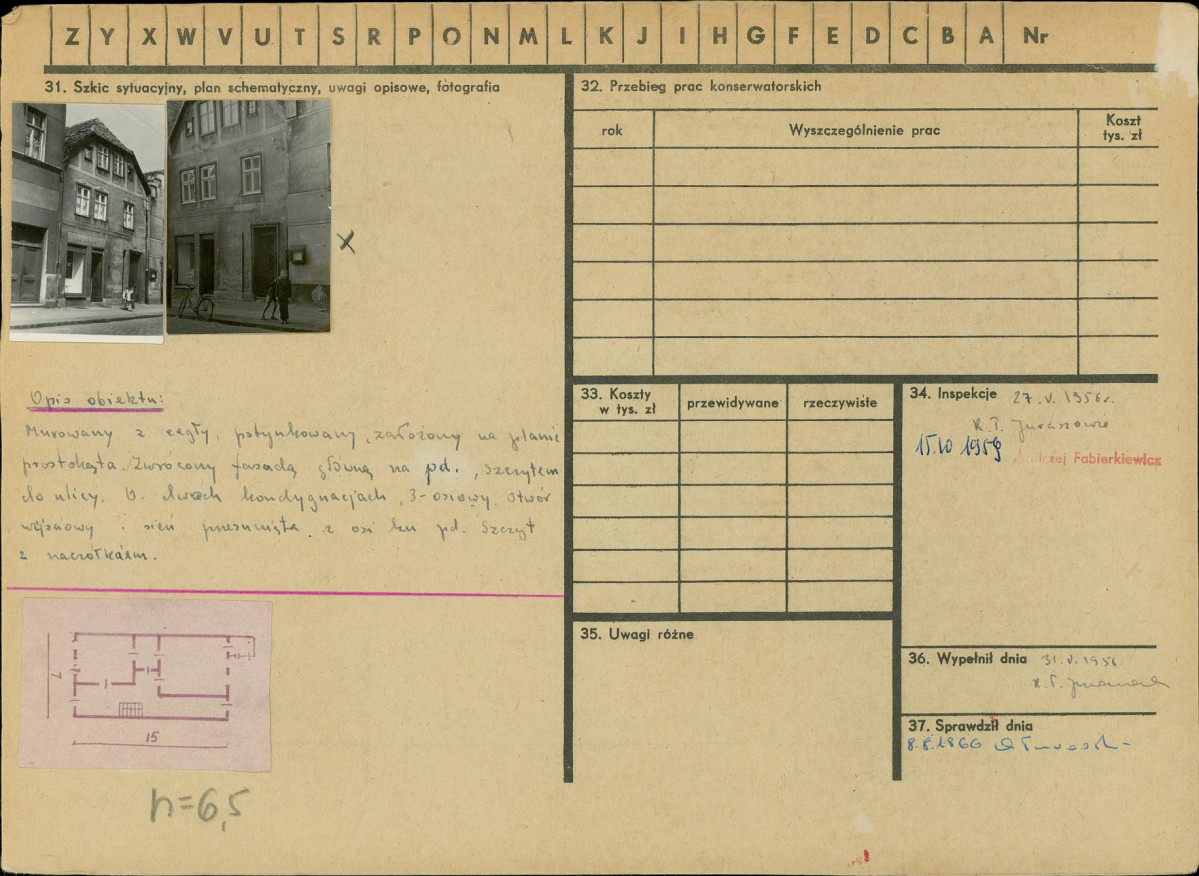 Z Y X W V U T S R P O N M L K J I H G F E D C B A Nr
31. Szkic sytuacyjny, plan schematyczny, uwagi opisowe, fotografia
x
Opis obiektu:
Murowany z cegły, potynkowany, założony na planie
prostokąta. Zwrócony fasadą główną na pd., szczytem
do ulicy. O dwóch kondygnacjach, 3-osiowy. Otwór
wejściowy i sień przesunięta z osi ku pd. Szczyt
z naczółkiem.
7
15
h=6,5
32. Przebieg prac konserwatorskich
rok Wyszczególnienie prac Koszt tys. zł
33. Koszty w tys. zł przewidywane rzeczywiste
34. Inspekcje 27.V.1956r.
K.T.
15.10 1959
Andrzej Fabierkiewicz
35. Uwagi różne
36. Wypełnił dnia 31.V.1956
K.T.
37. Sprawdził dnia
8.8.1966